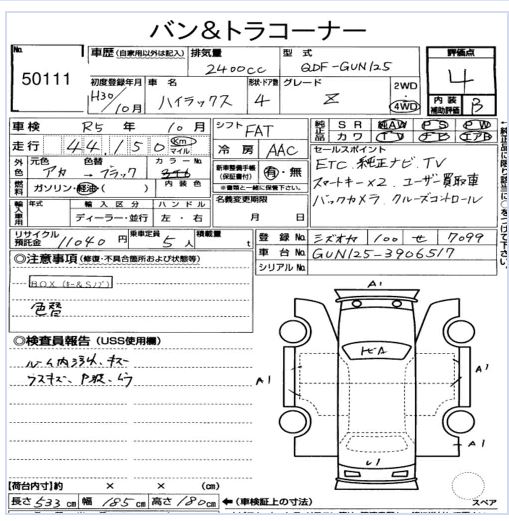 バン&トラコーナー
No.
50111
車歴 (自家用以外は記入)
排気量
2400cc
型式
QDF-GUN125
評価点
4
初度登録年月
H30/10月
車名
ハイラックス
形状・ドア数
4
グレード
Z
2WD
・
4WD
内装
補助評価
B
車検 R5年 10月
シフト FAT
純正品 SR 純AW PS PW
カワ TV ナビ エアB
走行 44,150 Km マイル
冷房 AAC
セールスポイント
ETC. 純正ナビ. TV
スマートキー×2. ユーザー買取車
バックカメラ. クルーズコントロール
外色 元色 アカ → 色替 ブラック
カラーNo.
新車整備手帳
(保証書付)
有・無
※書類と一緒に保管下さい。
燃料 ガソリン・軽油( )
内装色
名義変更期限
月 日
輸入車用 年式 輸入区分 ハンドル
ディーラー・並行 左・右
リサイクル
預託金
11040円
乗車定員
5人
積載量
t
登録No. 100 せ 7099
車台No. GUN125-3906517
シリアルNo.
◎注意事項 (修復・不具合箇所および状態等)
BOX (キー&Sノブ)
色替
◎検査員報告 (USS使用欄)
A1
A1
A1
A1
スペア
【荷台内寸】約 × × (cm)
長さ 533cm 幅 185cm 高さ 180cm
←(車検証上の寸法)